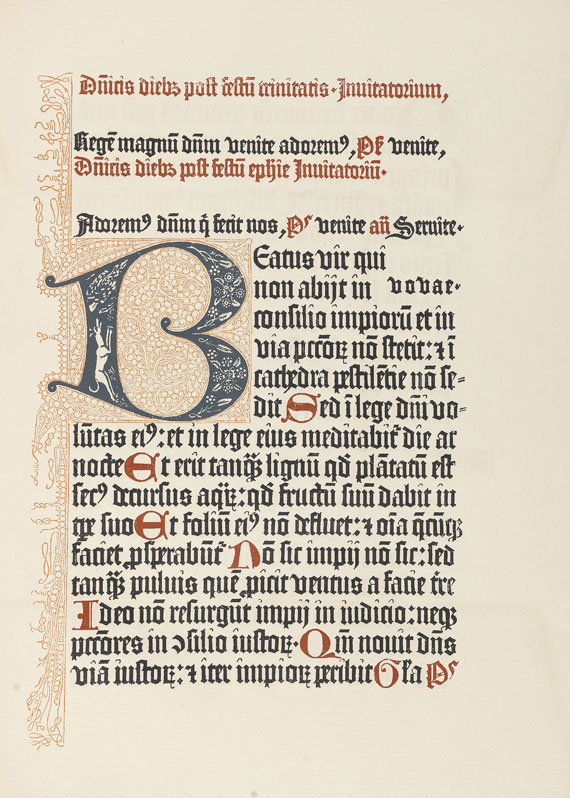 Dñicis diebꝫ post festũ trinitatis · Inuitatorium,
Regẽ magnũ dñm venite adoremꝰ, Ps̃ venite,
Dñicis diebꝫ post festũ ephie Inuitatoriũ·
Adoremꝰ dñm q̃ fecit nos, Ps venite añ Seruite·
Beatus vir qui
non abijt in vovae·
consilio impiorũ et in
via pccõꝝ nõ stetit: ⁊ ĩ
cathedra pestilẽtie nõ se⸗
dit Sed ĩ lege dñi vo⸗
lũtas eiꝰ: et in lege eius meditabit᷑ die ac
nocte Et erit tanqꝫ̃ lignũ qd̃ plãtatũ est
secꝰ decursus aqꝝ: qd̃ fructũ suũ dabit in
tp̃e suo Et foliũ eiꝰ nõ defluet: ⁊ oĩa q̃cũqꝫ
faciet ꝓsperabũt᷑ Nõ sic impij nõ sic: sed
tanqꝫ̃ puluis quẽ ꝓicit ventus a facie tr̃e
Ideo nõ resurgũt impij in iudicio: neqꝫ
pccõres in ↄsilio iustoꝝ· Qm̃ nouit dñs
viã iustoꝝ: ⁊ iter impioꝝ peribit Gl̃a Ps